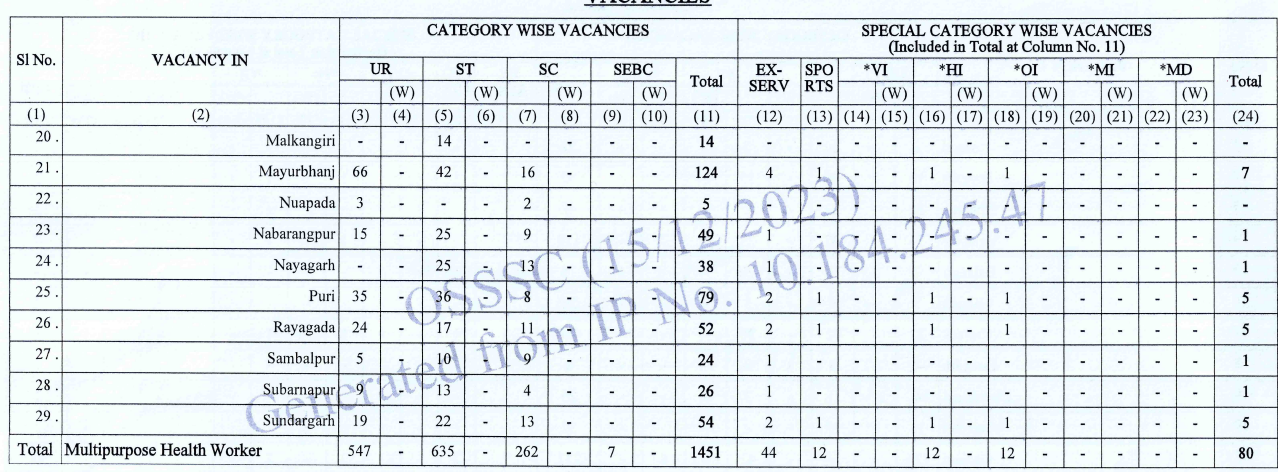 VACANCIES
Sl No. VACANCY IN CATEGORY WISE VACANCIES SPECIAL CATEGORY WISE VACANCIES
(Included in Total at Column No. 11)
UR ST SC SEBC Total EX-SERV SPORTS *VI *HI *OI *MI *MD Total
(W) (W) (W) (W) (W) (W) (W) (W) (W)
(1) (2) (3) (4) (5) (6) (7) (8) (9) (10) (11) (12) (13) (14) (15) (16) (17) (18) (19) (20) (21) (22) (23) (24)
20 . Malkangiri - - 14 - - - - - 14 - - - - - - - - - - - - -
21 . Mayurbhanj 66 - 42 - 16 - - - 124 4 1 - - 1 - 1 - - - - - 7
22 . Nuapada 3 - - - 2 - - - 5 - - - - - - - - - - - - -
23 . Nabarangpur 15 - 25 - 9 - - - 49 1 - - - - - - - - - - - 1
24 . Nayagarh - - 25 - 13 - - - 38 1 - - - - - - - - - - - 1
25 . Puri 35 - 36 - 8 - - - 79 2 1 - - 1 - 1 - - - - - 5
26 . Rayagada 24 - 17 - 11 - - - 52 2 1 - - 1 - 1 - - - - - 5
27 . Sambalpur 5 - 10 - 9 - - - 24 1 - - - - - - - - - - - 1
28 . Subarnapur 9 - 13 - 4 - - - 26 1 - - - - - - - - - - - 1
29 . Sundargarh 19 - 22 - 13 - - - 54 2 1 - - 1 - 1 - - - - - 5
Total Multipurpose Health Worker 547 - 635 - 262 - 7 - 1451 44 12 - - 12 - 12 - - - - - 80
OSSSC (15/12/2023)
Generated from IP No. 10.184.245.47